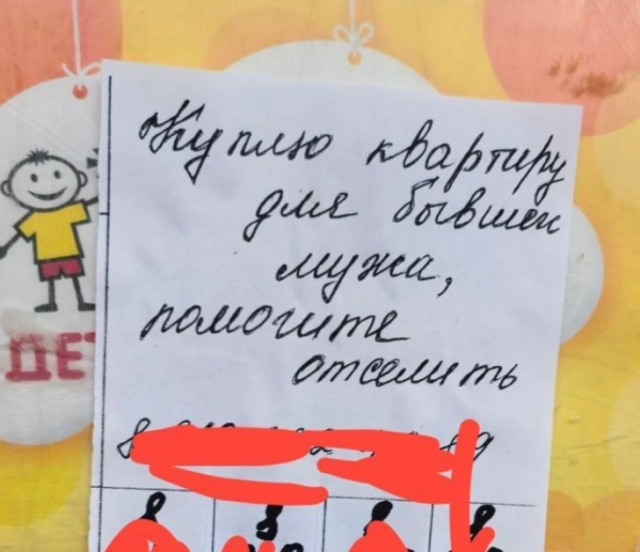 Куплю квартиру
для бывшек
мужа,
помогите
отселить
ДЕТ